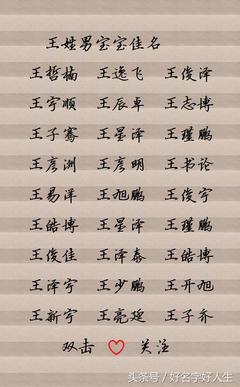 王姓男宝宝佳名
王哲楠 王逸飞 王俊泽
王宇顺 王辰卓 王志博
王子骞 王星泽 王瑾鹏
王彦洲 王彦明 王书论
王易洋 王旭鹏 王俊宇
王皓博 王星泽 王瑾鹏
王俊佳 王泽泰 王皓博
王泽宇 王少鹏 王开旭
王新宇 王亮廷 王子乔
双击 关注
头条号 / 好名字好人生